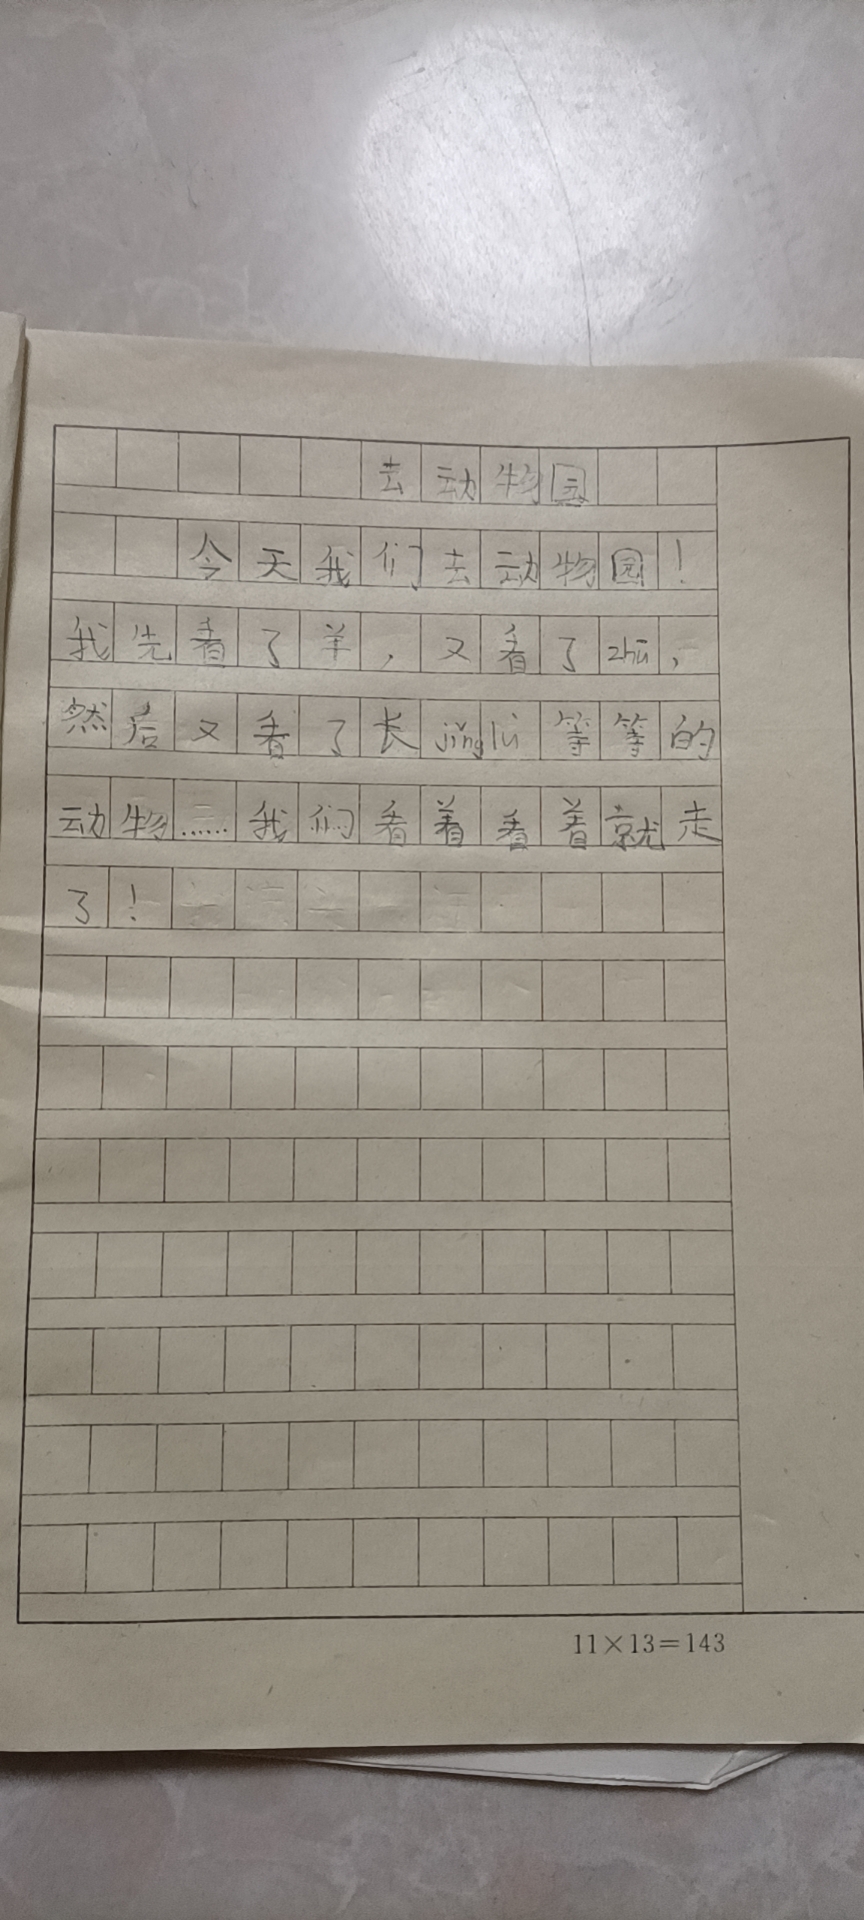 去动物园
今天我们去动物园！
我先看了羊，又看了zhū，
然后又看了长jǐnglù等等的
动物……我们看着看着就走
了！
11×13=143